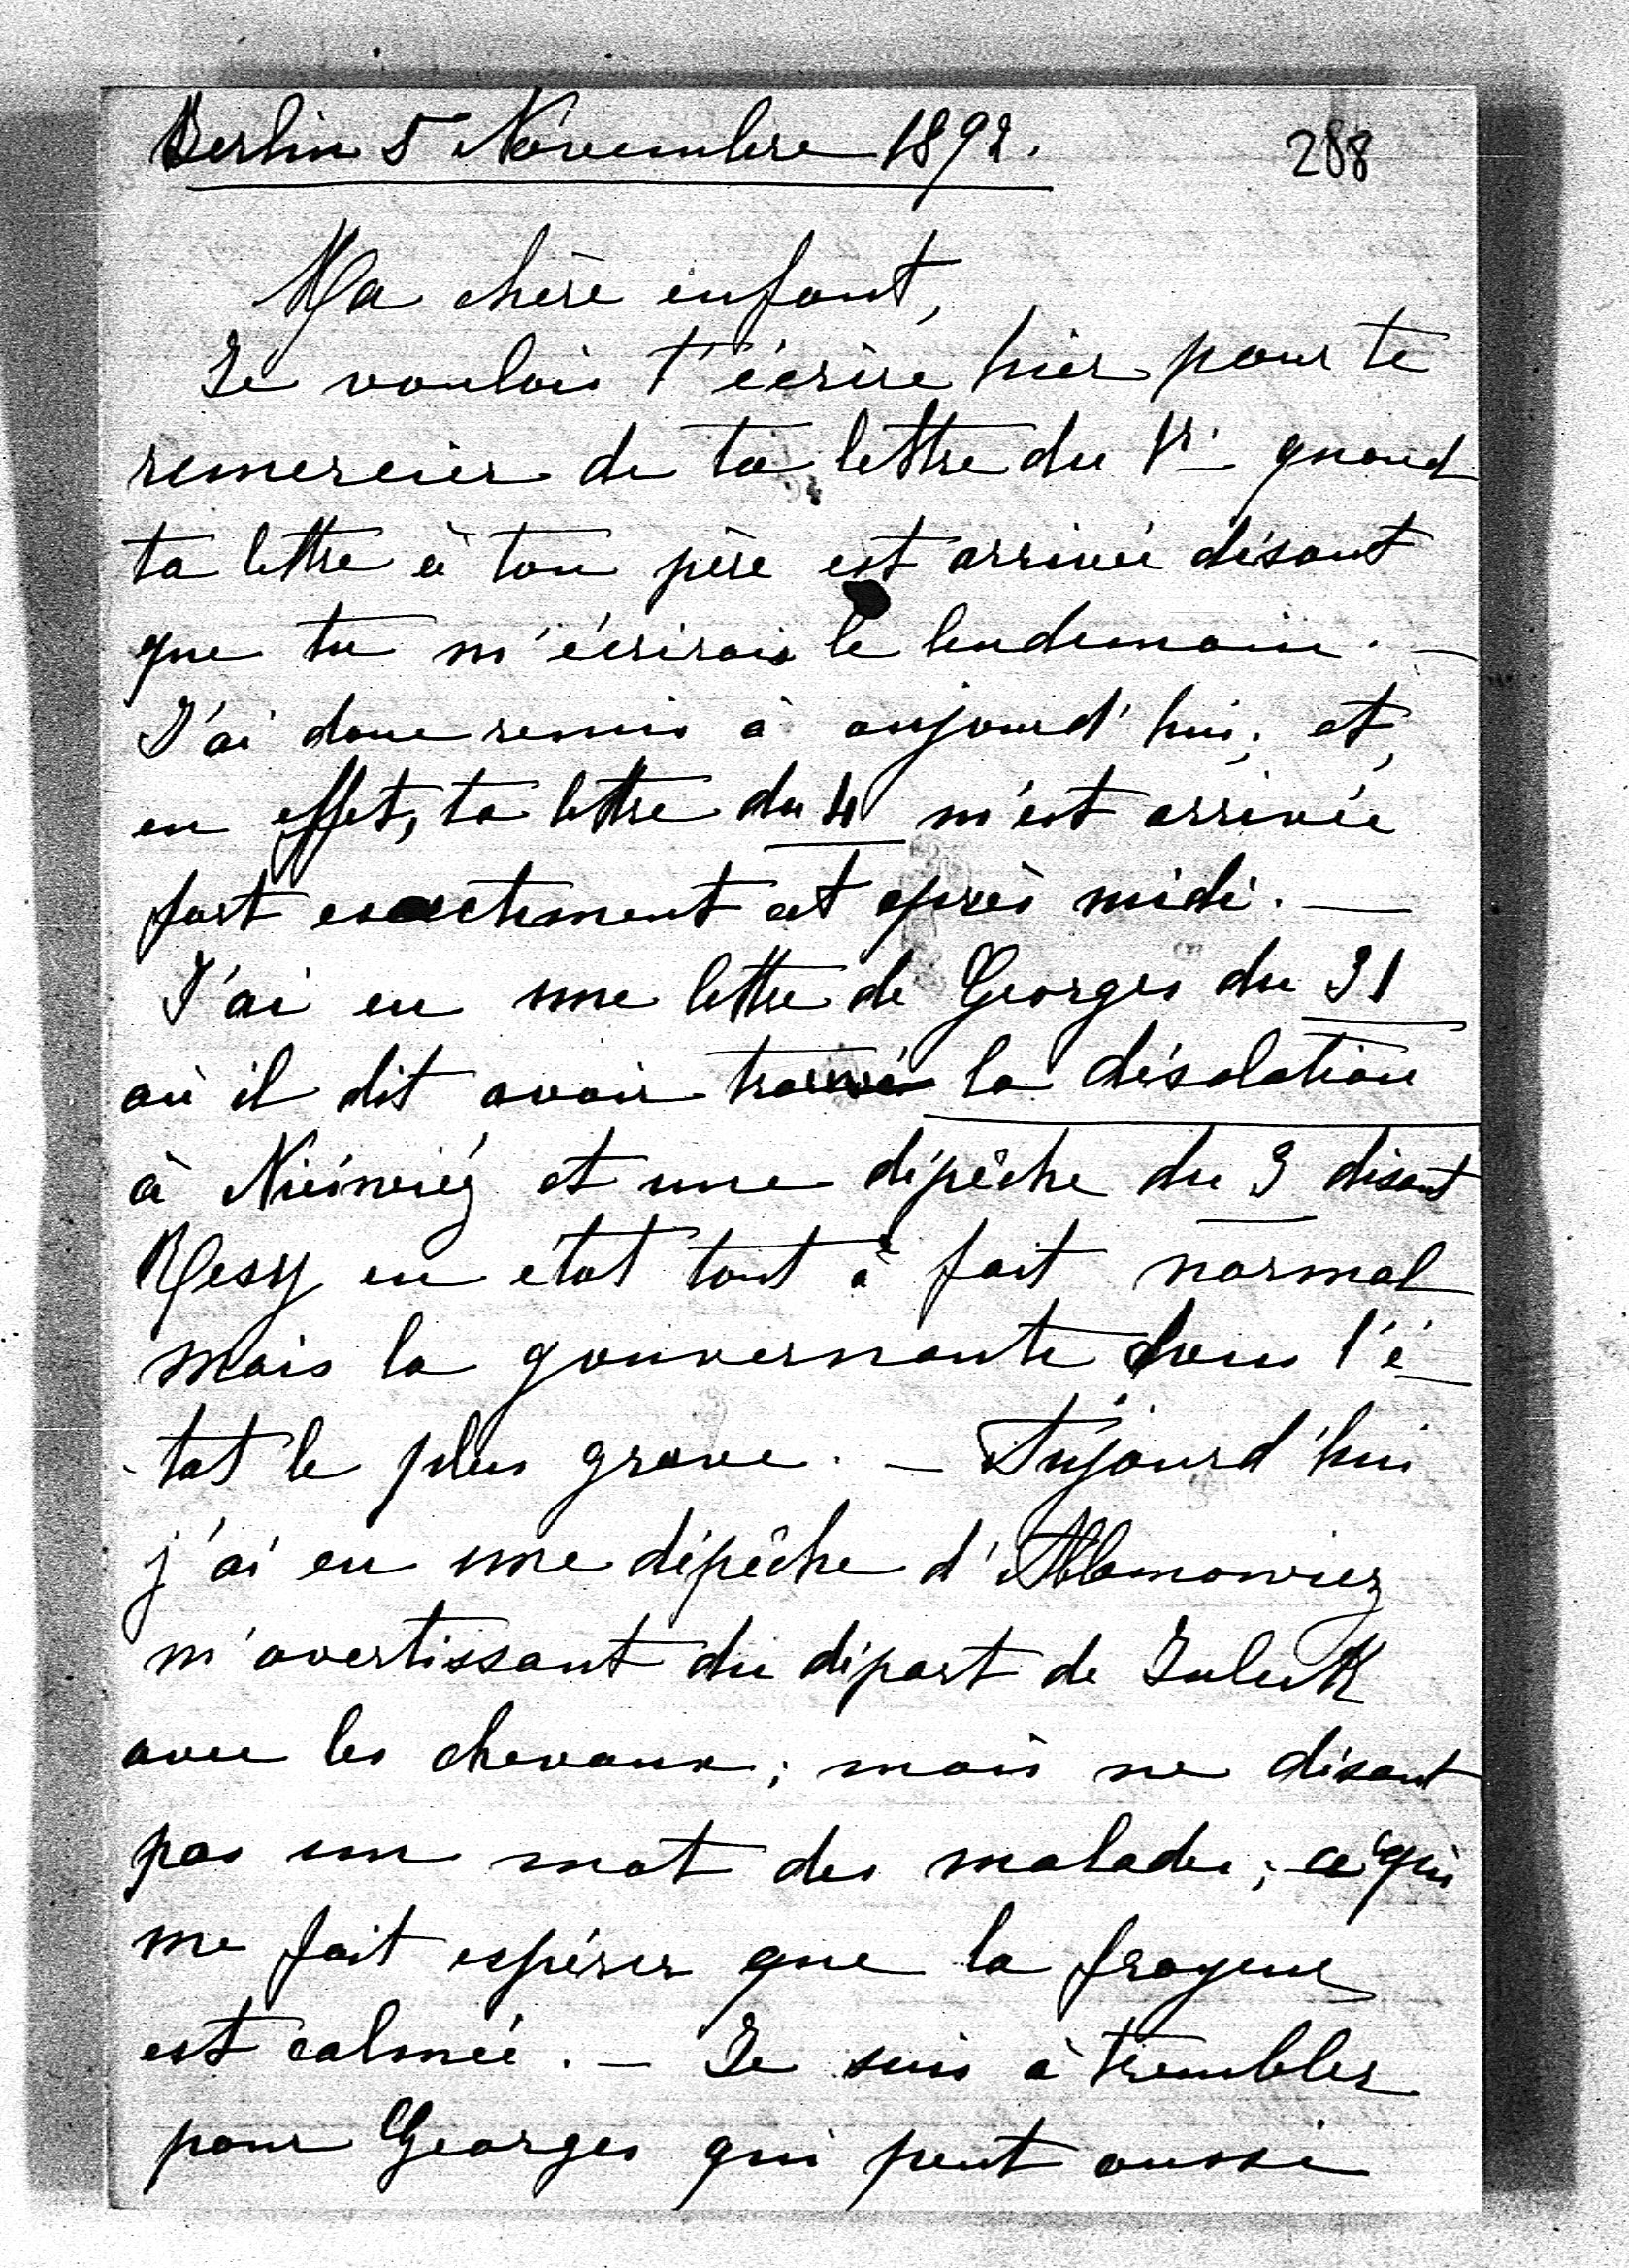 Berlin 5 Novembre 1892. 288
Ma chère enfant,
Je voulais t'écrire hier pour te
remercier de ta lettre du 1r quand
ta lettre à ton père est arrivée disant
que tu m'écrirais le lendemain. —
J'ai donc remis à aujourd'hui; et,
en effet, ta lettre du 4 m'est arrivée
fort exactement cet après midi. —
J'ai eu une lettre de Georges du 31
où il dit avoir trouvé la désolation
à Niéswiéz et une dépêche du 3 disant
Mesy en etat tout à fait normal
mais la gouvernante dans l'é-
-tat le plus grave. — Aujourd'hui
j'ai eu une dépêche d'Abamowicz
m'avertissant du départ de Julek
avec les chevaux; mais ne disant
pas un mot des malades; ce qui
me fait espérer que la frayeur
est calmée. — Je suis à trembler
pour Georges qui peut aussi